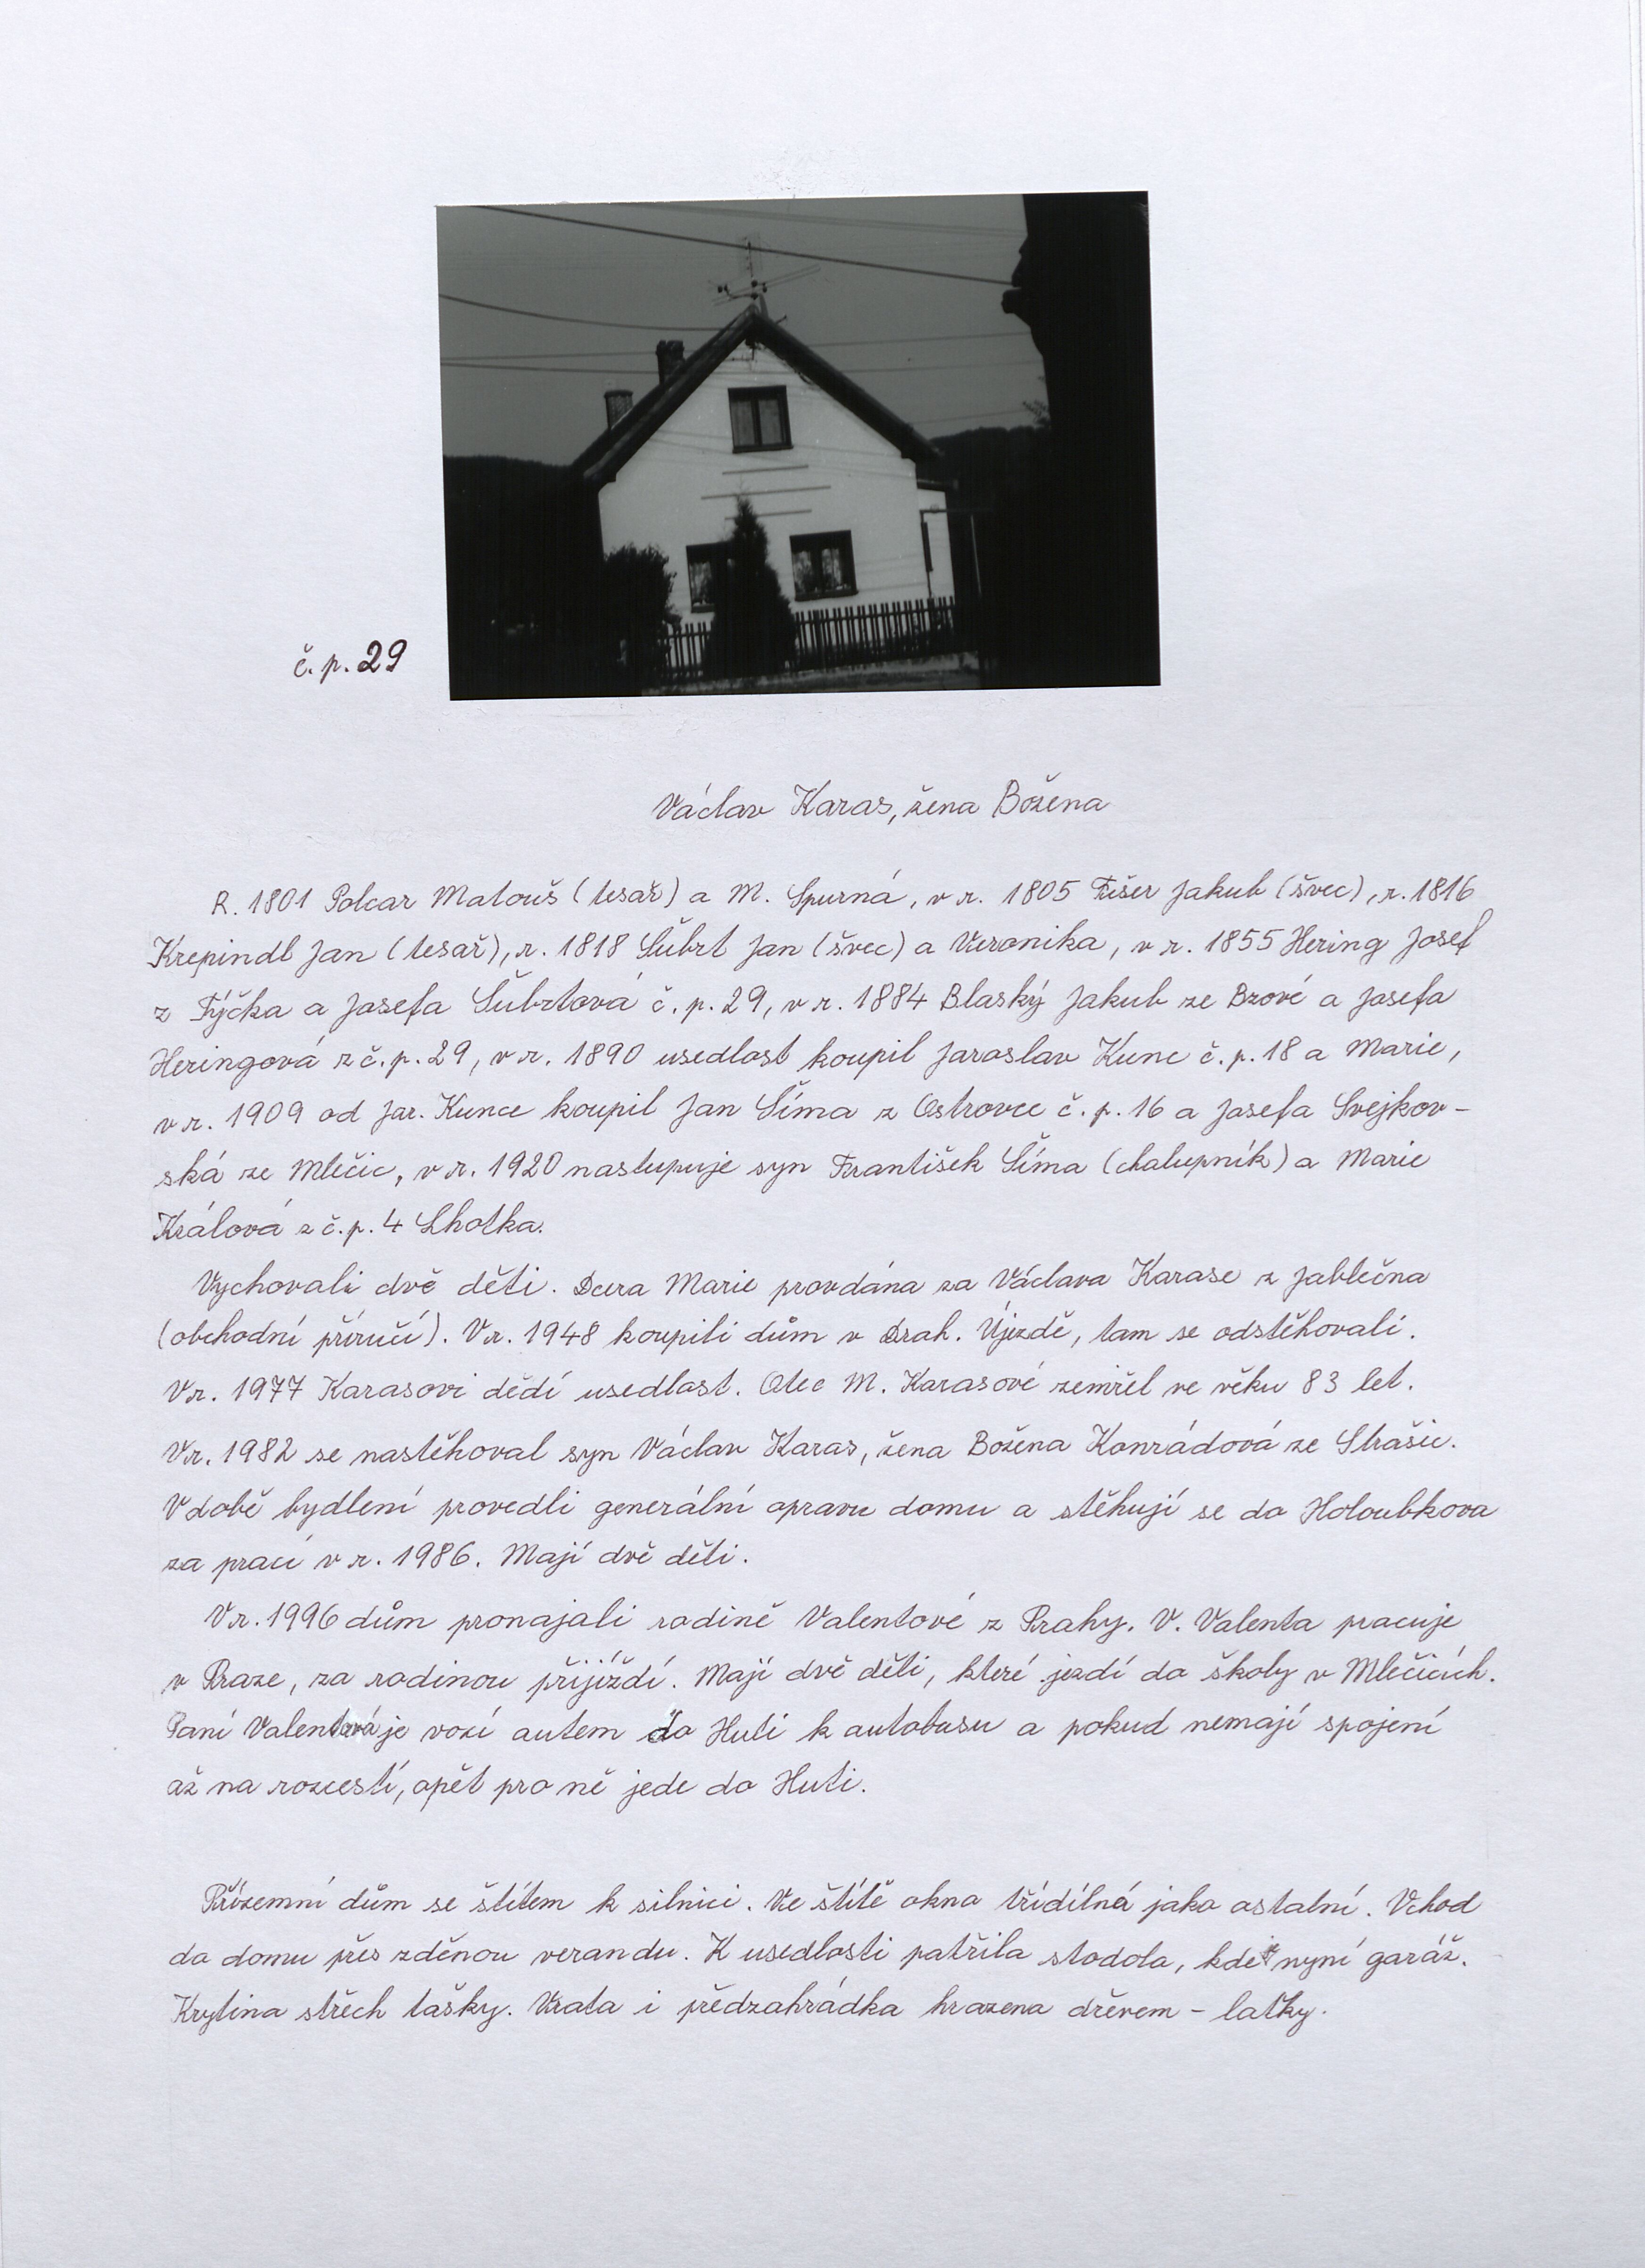 č. p. 29
Václav Karas, žena Božena
R. 1801 Polcar Matouš (tesař) a M. Spurná, v r. 1805 Fišer Jakub (švec), r. 1816
Krepindl Jan (tesař), r. 1818 Šubrt Jan (švec) a Veronika, v r. 1855 Hering Josef
z Týčka a Josefa Šubrtová č. p. 29, v r. 1884 Blaský Jakub ze Bzové a Josefa
Heringová z č. p. 29, v r. 1890 usedlost koupil Jaroslav Kunc č. p. 18 a Marie,
v r. 1909 od Jar. Kunce koupil Jan Šíma z Ostrovce č. p. 16 a Josefa Svejkov-
ská ze Mlečic, v r. 1920 nastupuje syn František Šíma (chalupník) a Marie
Králová z č. p. 4 Lhotka.
Vychovali dvě děti. Dcera Marie provdána za Václava Karase z Jablečna
(obchodní příručí). V r. 1948 koupili dům v Drah. Újezdě, tam se odstěhovali.
V r. 1977 Karasovi dědí usedlost. Otec M. Karasové zemřel ve věku 83 let.
V r. 1982 se nastěhoval syn Václav Karas, žena Božena Konrádová ze Strašic.
V době bydlení provedli generální opravu domu a stěhují se do Holoubkova
za prací v r. 1986. Mají dvě děti.
V r. 1996 dům pronajali rodině Valentové z Prahy. V. Valenta pracuje
v Praze, za rodinou přijíždí. Mají dvě děti, které jezdí do školy v Mlečicích.
Paní Valentová je vozí autem do Huti k autobusu a pokud nemají spojení
až na rozcestí, opět pro ně jede do Huti.
Přízemní dům se štítem k silnici. Ve štítě okna třídílná jako ostatní. Vchod
do domu přes zděnou verandu. K usedlosti patřila stodola, kde nyní garáž.
Krytina střech tašky. Vrata i předzahrádka hrazena dřevem - laťky.